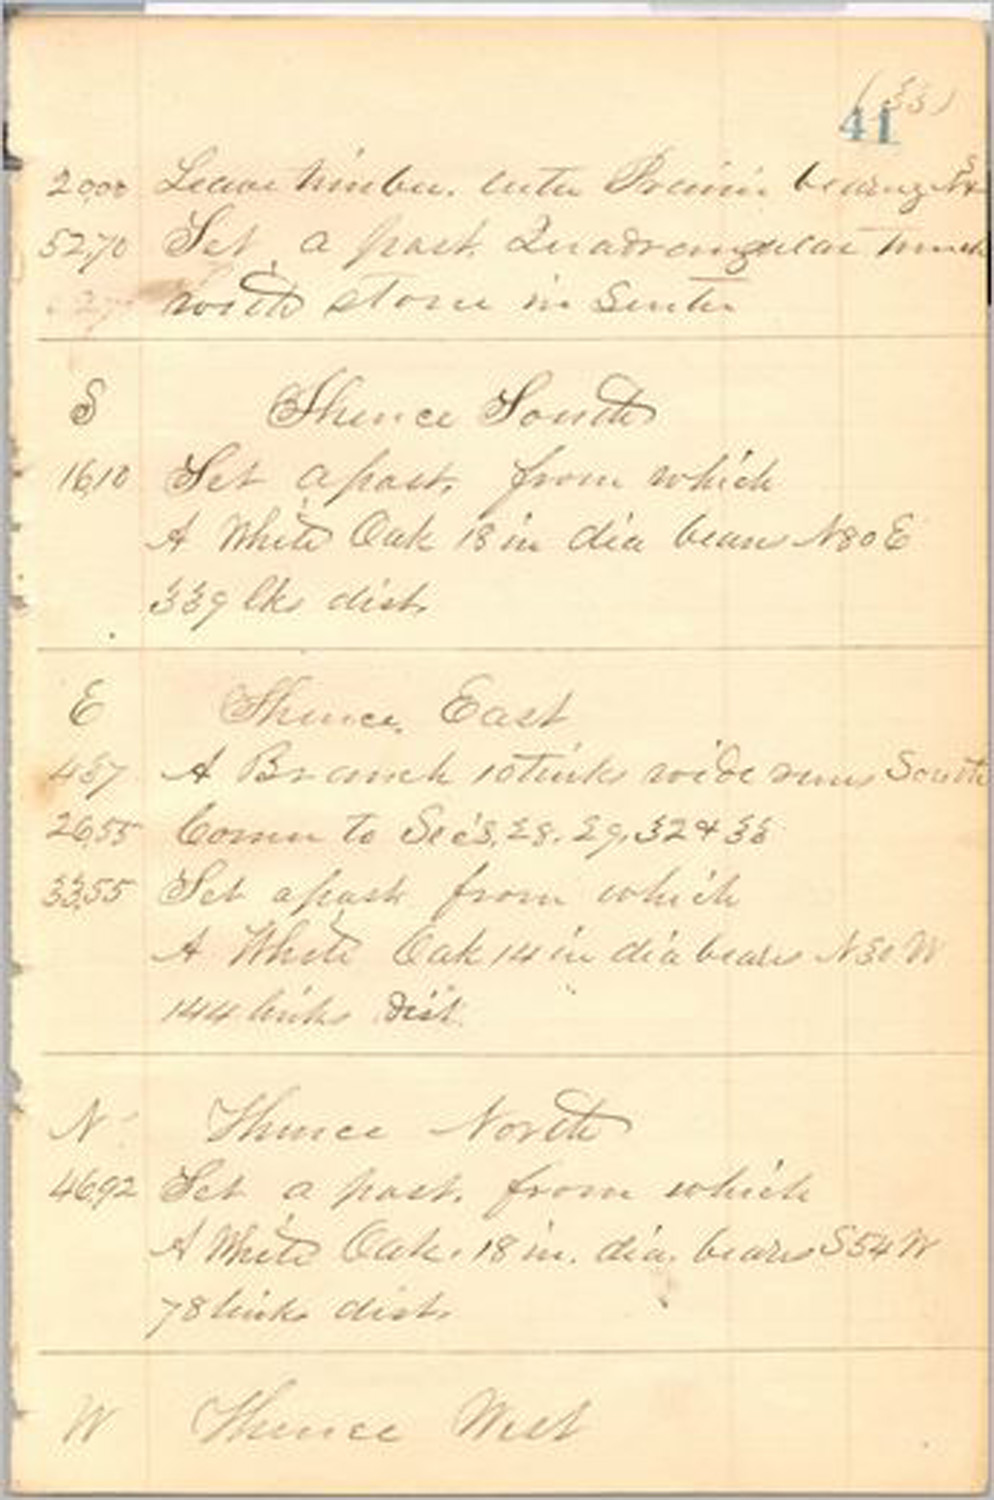 (33)
41
20,00 Leave timber. enter Prairie bearing
52,70 Set a post, Quadrangular trench
with stone in Senter
S Thence South
16,10 Set a post, from which
A White Oak 18 in dia bears N80E
339 lks dist.
E Thence East
4,57 A Branch 10 links wide runs South
26,55 Corner to Sec's, 28. 29, 32 & 33
33,55 Set a post from which
A White Oak 14 in dia bears N30W
144 links dist.
N Thence North
46,92 Set a post, from which
A White Oak. 18 in. dia. bears S54W
78 links dist.
W Thence West